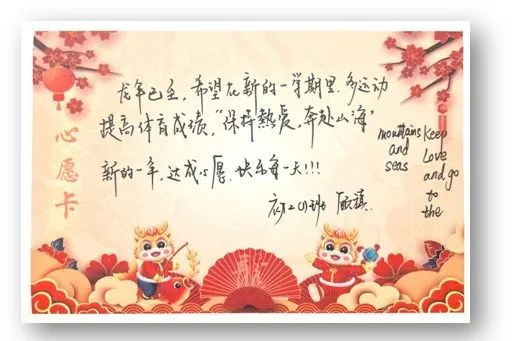 心愿卡
龙年已至，希望在新的一学期里，多运动
提高体育成绩，“保持熱爱，奔赴山海”
新的一年，达成心愿，快乐每一天!!!
初二(1)班
Keep
Love
and go
to
the
mountains
and
seas